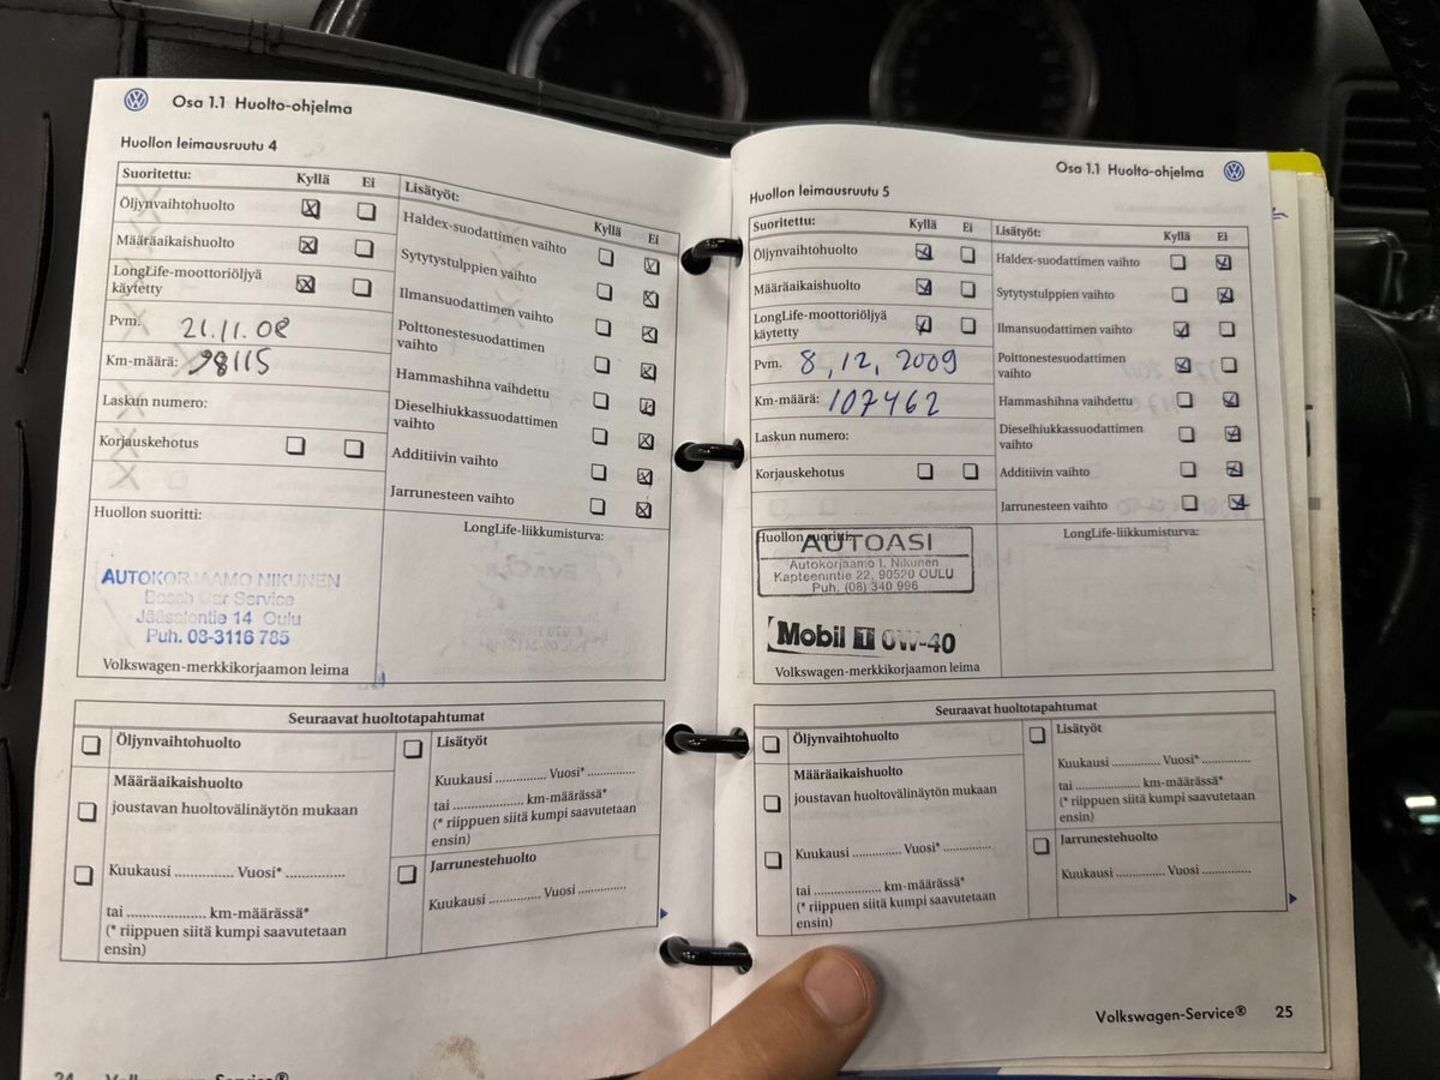 Osa 1.1 Huolto-ohjelma
Huollon leimausruutu 4
Suoritettu: Kyllä Ei
Öljynvaihtohuolto
Määräaikaishuolto
LongLife-moottoriöljyä
käytetty
Pvm. 21.11.08
Km-määrä: 98115
Laskun numero:
Korjauskehotus
Lisätyöt: Kyllä Ei
Haldex-suodattimen vaihto
Sytytystulppien vaihto
Ilmansuodattimen vaihto
Polttonestesuodattimen
vaihto
Hammashihna vaihdettu
Dieselhiukkassuodattimen
vaihto
Additiivin vaihto
Jarrunesteen vaihto
Huollon suoritti:
AUTOKORJAAMO NIKUNEN
Bosch Car Service
Jääsalontie 14 Oulu
Puh. 08-3116 785
Volkswagen-merkkikorjaamon leima
LongLife-liikkumisturva:
Seuraavat huoltotapahtumat
Öljynvaihtohuolto
Määräaikaishuolto
joustavan huoltovälinäytön mukaan
Kuukausi .............. Vuosi* ..............
tai .................... km-määrässä*
(* riippuen siitä kumpi saavutetaan
ensin)
Lisätyöt
Kuukausi .............. Vuosi* .............
tai .................... km-määrässä*
(* riippuen siitä kumpi saavutetaan
ensin)
Jarrunestehuolto
Kuukausi .............. Vuosi .............
24 Volkswagen-Service®
Osa 1.1 Huolto-ohjelma
Huollon leimausruutu 5
Suoritettu: Kyllä Ei
Öljynvaihtohuolto
Määräaikaishuolto
LongLife-moottoriöljyä
käytetty
Pvm. 8,12, 2009
Km-määrä: 107462
Laskun numero:
Korjauskehotus
Lisätyöt: Kyllä Ei
Haldex-suodattimen vaihto
Sytytystulppien vaihto
Ilmansuodattimen vaihto
Polttonestesuodattimen
vaihto
Hammashihna vaihdettu
Dieselhiukkassuodattimen
vaihto
Additiivin vaihto
Jarrunesteen vaihto
Huollon suoritti:
AUTOASI
Autokorjaamo I. Nikunen
Kapteenintie 22, 90520 OULU
Puh. (08) 340 996
Mobil 1 0W-40
Volkswagen-merkkikorjaamon leima
LongLife-liikkumisturva:
Seuraavat huoltotapahtumat
Öljynvaihtohuolto
Määräaikaishuolto
joustavan huoltovälinäytön mukaan
Kuukausi .............. Vuosi* ..............
tai .................... km-määrässä*
(* riippuen siitä kumpi saavutetaan
ensin)
Lisätyöt
Kuukausi .............. Vuosi* ..............
tai .................... km-määrässä*
(* riippuen siitä kumpi saavutetaan
ensin)
Jarrunestehuolto
Kuukausi .............. Vuosi ..............
Volkswagen-Service® 25